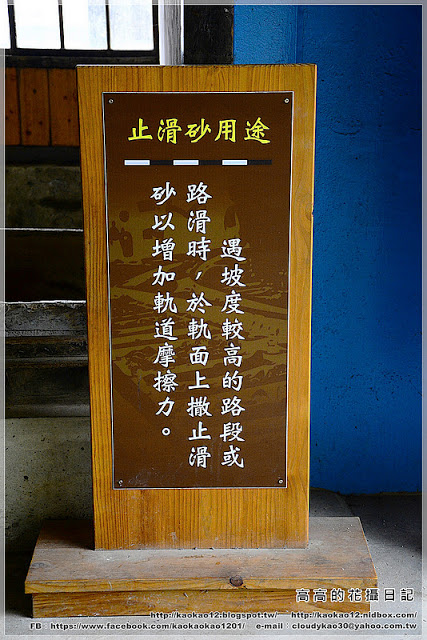 止滑砂用途
遇坡度較高的路段或
路滑時，於軌面上撒止滑
砂以增加軌道摩擦力。
高高的花攝日記
http://kaokao12.blogspot.tw/ http://kaokao12.nidbox.com/
FB https://www.facebook.com/kaokaokao1201/ e-mail：cloudykao30@yahoo.com.tw